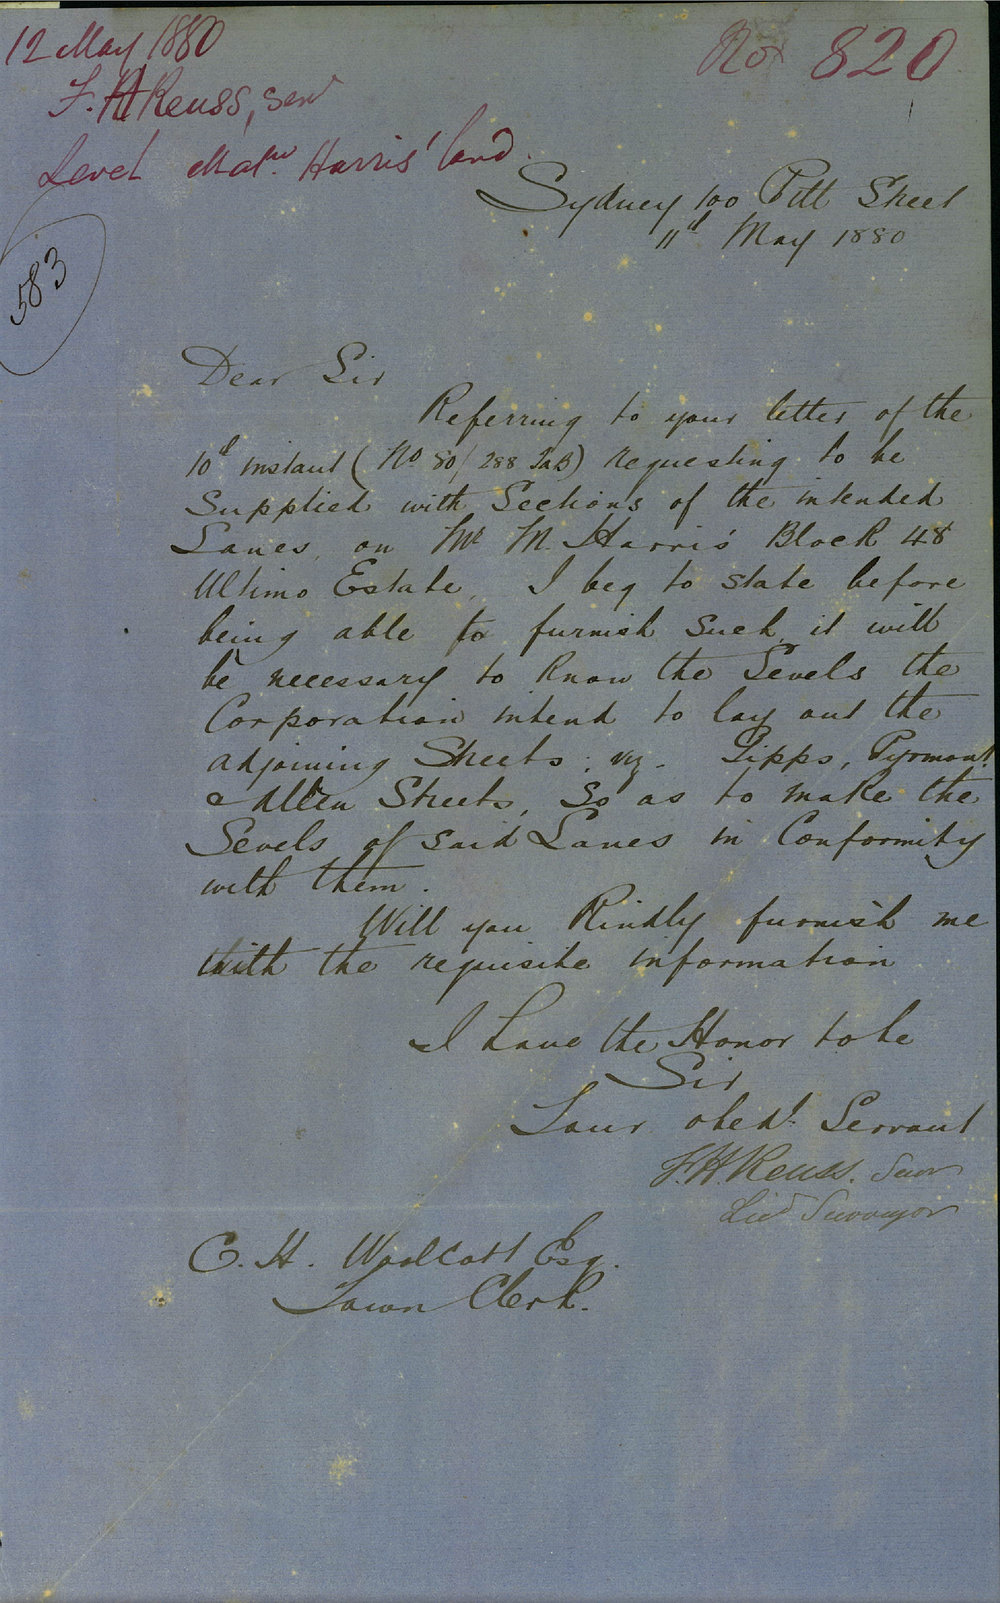 12 May 1880
No 820
F. H Reuss, Senr
Level Matw. Harris' land.
Sydney 100 Pitt Street
11th May 1880
583
Dear Sir
Referring to your letter of the
10th instant (No 80/288 ) requesting to be
Supplied with Sections of the intended
Lanes, on Mr M. Harris' Block 48
Ultimo Estate, I beg to state before
being able to furnish such, it will
be necessary to know the Levels the
Corporation intend to lay out the
adjoining Streets; viz. Gipps, Pyrmont
& Allen Streets, So as to make the
Levels of said Lanes in Conformity
with them.
Will you Kindly furnish me
with the requisite information
I have the Honor to be
Sir
Your obedt. Servant
F. H. Reuss. Senr
Licd Surveyor
C. H. Woolcott Esq.
Town Clerk.